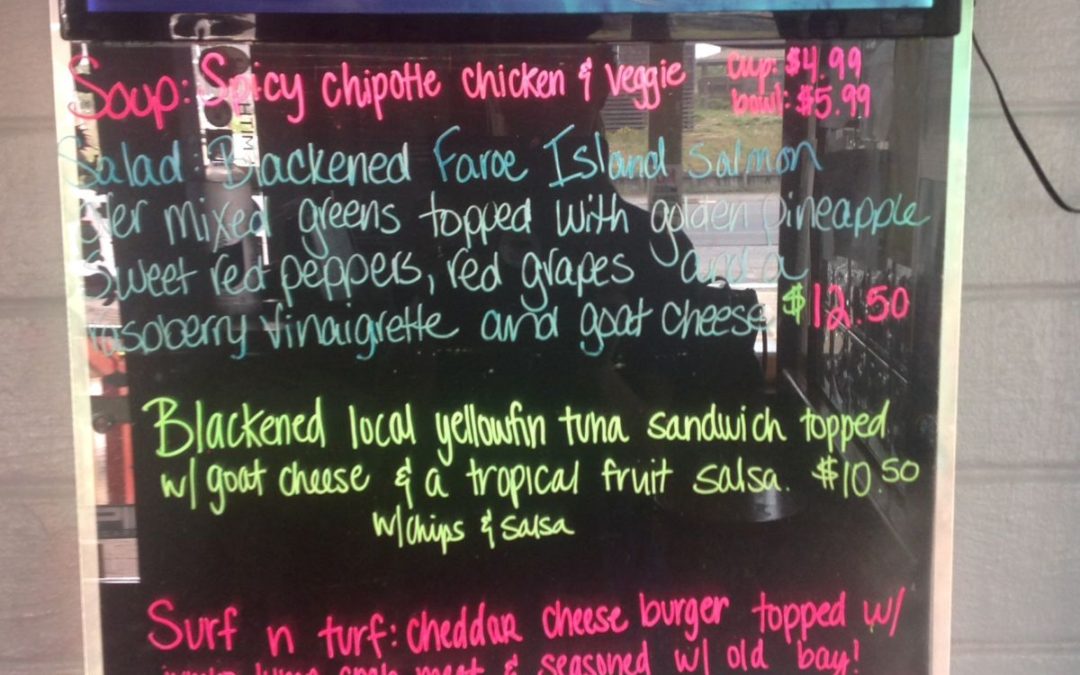 Soup: Spicy chipotle chicken & veggie cup: $4.99
bowl: $5.99
Salad: Blackened Faroe Island salmon
over mixed greens topped with golden pineapple
sweet red peppers, red grapes and a
raspberry vinaigrette and goat cheese $12.50
Blackened local yellowfin tuna sandwich topped
w/ goat cheese & a tropical fruit salsa. $10.50
w/chips & salsa
Surf n turf: cheddar cheese burger topped w/
jumbo lump crab meat & seasoned w/ old bay!